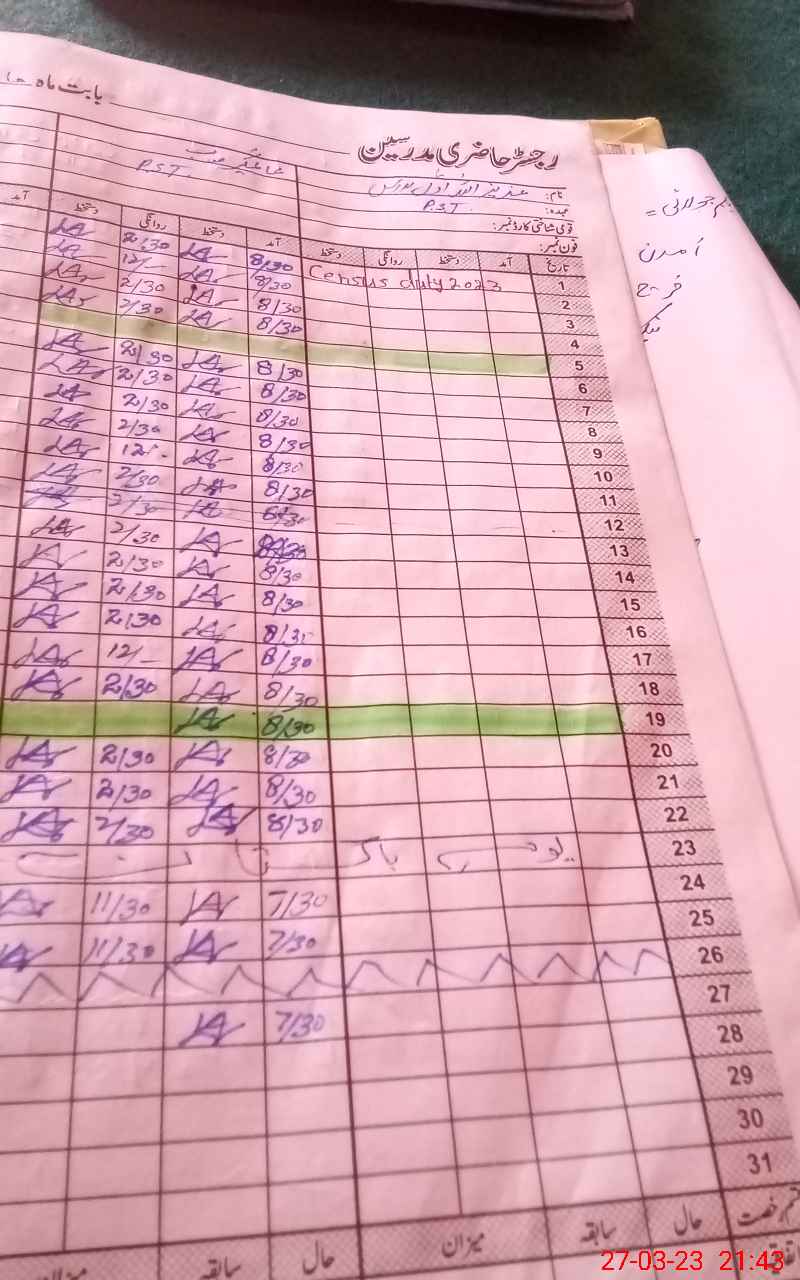 بابت ماہ
رجسٹر حاضری مدرسین
نام: عزیز اللہ اول مدرس
عہدہ: P.S.T P.S.T
قومی شناختی کارڈ نمبر:
فون نمبر:
تاریخ آمد دستخط روانگی دستخط آمد دستخط روانگی دستخط آمد
1 Census duty 2023 8/30 2/30
2 8/30 12/-
3 8/30 2/30
4 8/30 2/30
5
6 8/30 2/30
7 8/30 2/30
8 8/30 2/30
9 8/30 2/30
10 8/30 12/-
11 8/30 2/30
12 8/30 2/30
13 8/30 2/30
14 8/30 2/30
15 8/30 2/30
16 8/30 2/30
17 8/30 12/-
18 8/30 2/30
19 8/30
20 8/30 2/30
21 8/30 2/30
22 8/30 2/30
23 یوم پاکستان
24 7/30 11/30
25 7/30 11/30
26
27 7/30
28
29
30
31
قسم رخصت حال سابقہ میزان حال سابقہ میزان
یکم جولائی =
آمدن
خرچ
27-03-23 21:43